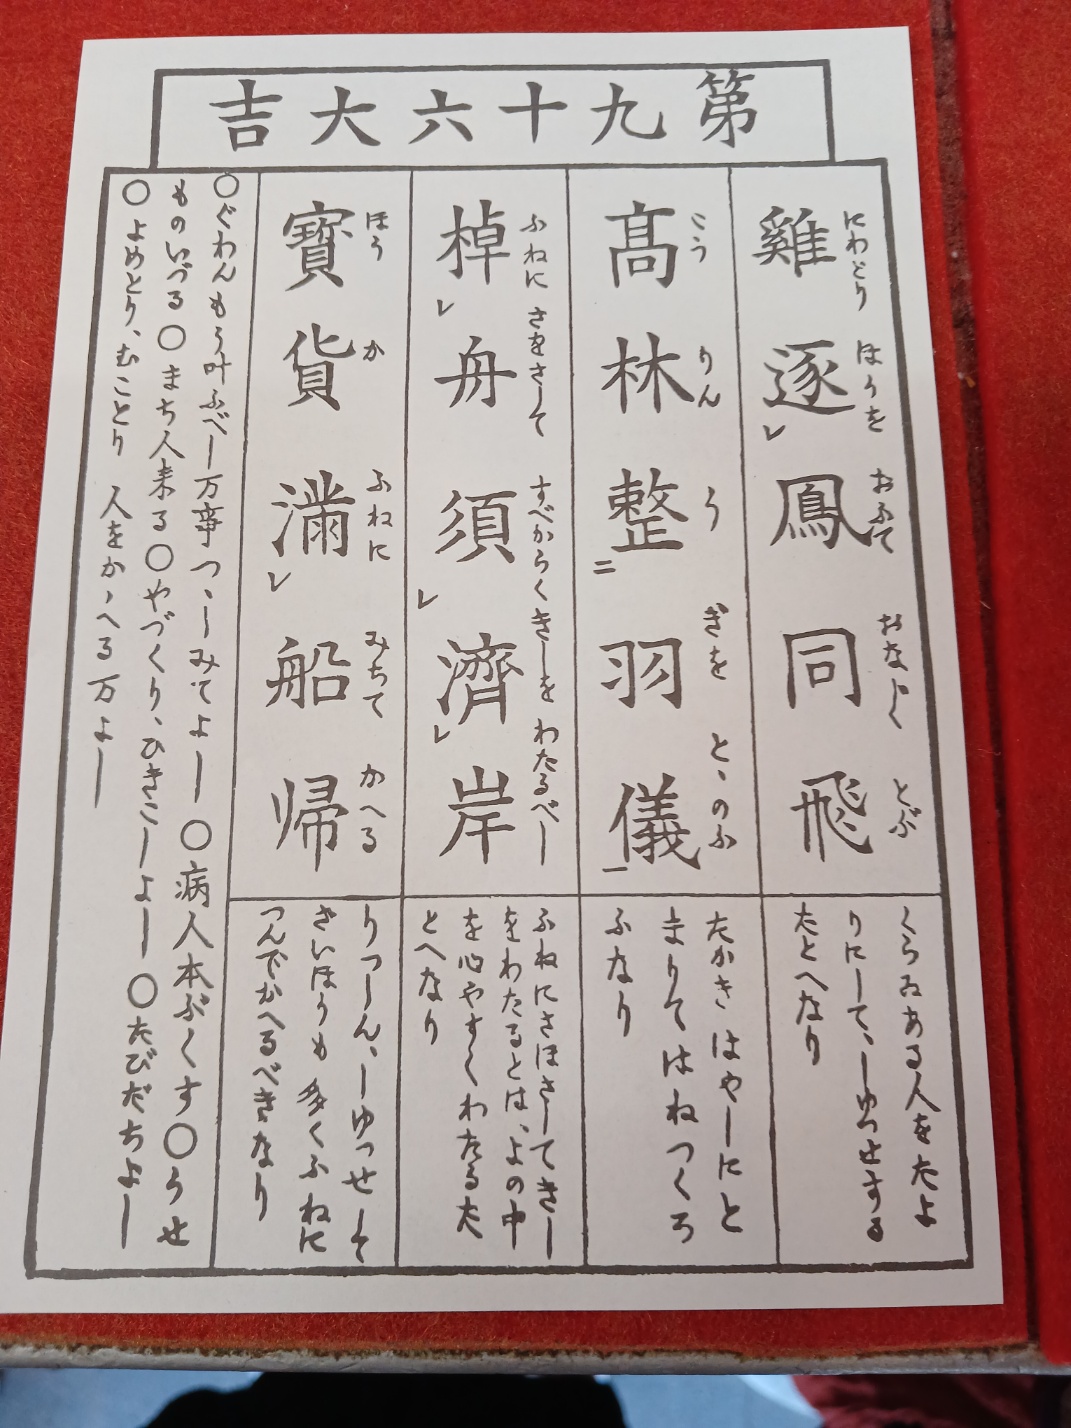 第九十六大吉
雞逐鳳同飛
にわとり ほうを おふて おなじく とぶ
髙林整羽儀
こう りん う ぎを とゝのふ
棹舟須濟岸
ふねに さをさして すべからくきしを わたるべし
寶貨滿船帰
ほう か ふねに みちて かへる
くらゐある人をたよ
りにして、しゆつせする
たとへなり
たかき はやしにと
まりて はねつくろ
ふなり
ふねにさほさしてきし
をわたるとは、よの中
を心やすくわたるた
とへなり
りつしん、しゆつせして
ざいほうも多くふねに
つんでかへるべきなり
○ぐわんもう叶ふべし万事つゝしみてよし○病人本ぶくす○うせ
ものいづる○まち人来る○やづくり、ひきこしよし○たびだちよし
○よめとり、むことり 人をかゝへる万よし